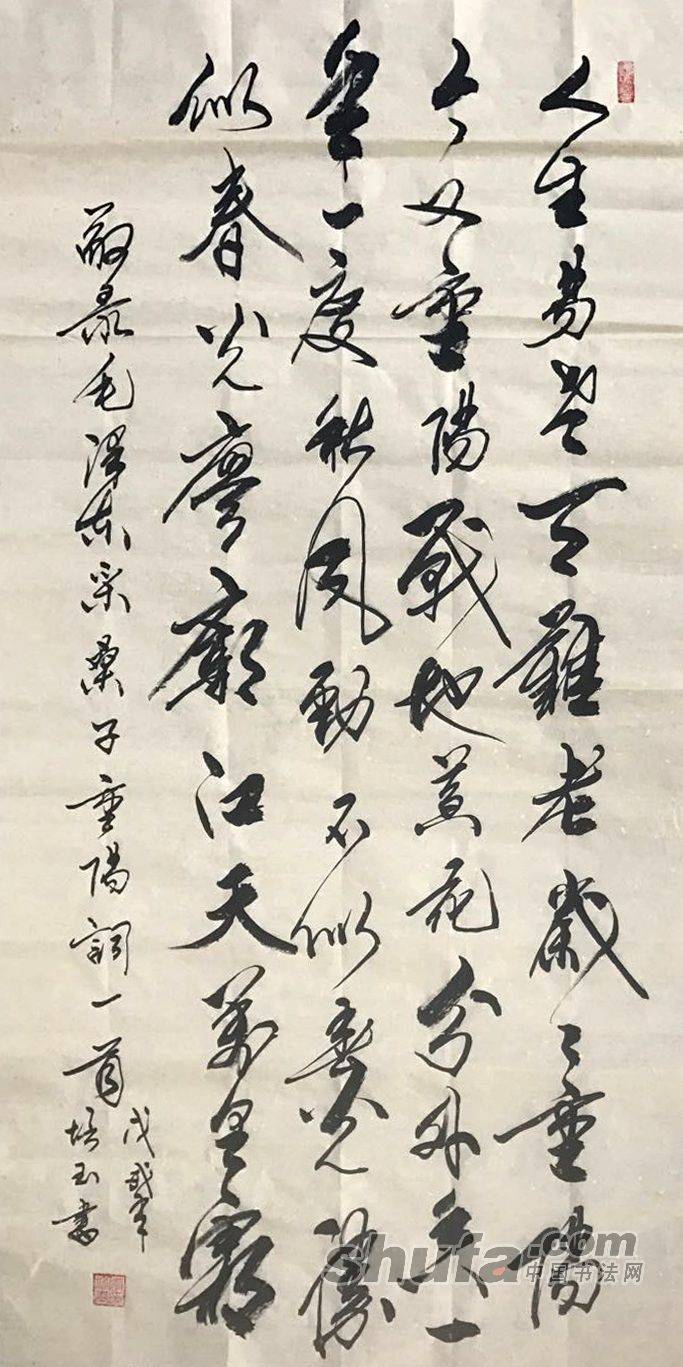 人生易老天難老歲〻重陽
今又重陽戰地黃花分外香一
年一度秋風勁不似春光勝
似春光寥廓江天萬里霜
敬录毛泽东采桑子重陽詞一首
戊戌年
培玉書
shufa.com
中国书法网